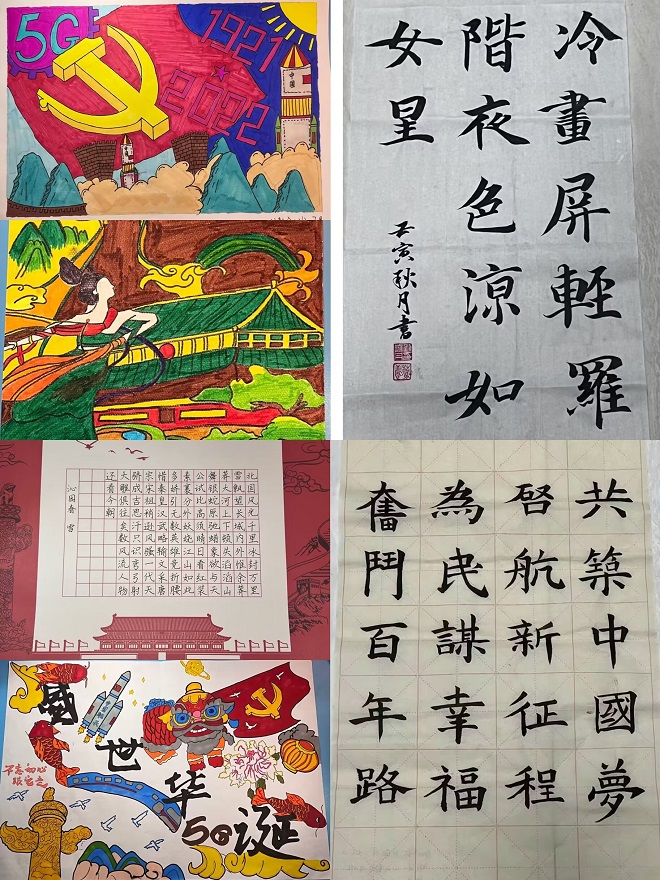 5G
1921
2022
中国
冷畫屏輕羅
階夜色涼如
女星
壬寅秋月書
沁园春 雪
北国风光千里冰封万里
雪飘望长城内外惟余莽
莽大河上下顿失滔滔山
舞银蛇原驰蜡象欲与天
公试比高须晴日看红装
素裹分外妖娆江山如此
多娇引无数英雄竞折腰
惜秦皇汉武略输文采唐
宗宋祖稍逊风骚一代天
骄成吉思汗只识弯弓射
大雕俱往矣数风流人物
还看今朝
盛世华诞
5G
不忘初心
共築中國夢
啓航新征程
為民謀幸福
奮鬥百年路